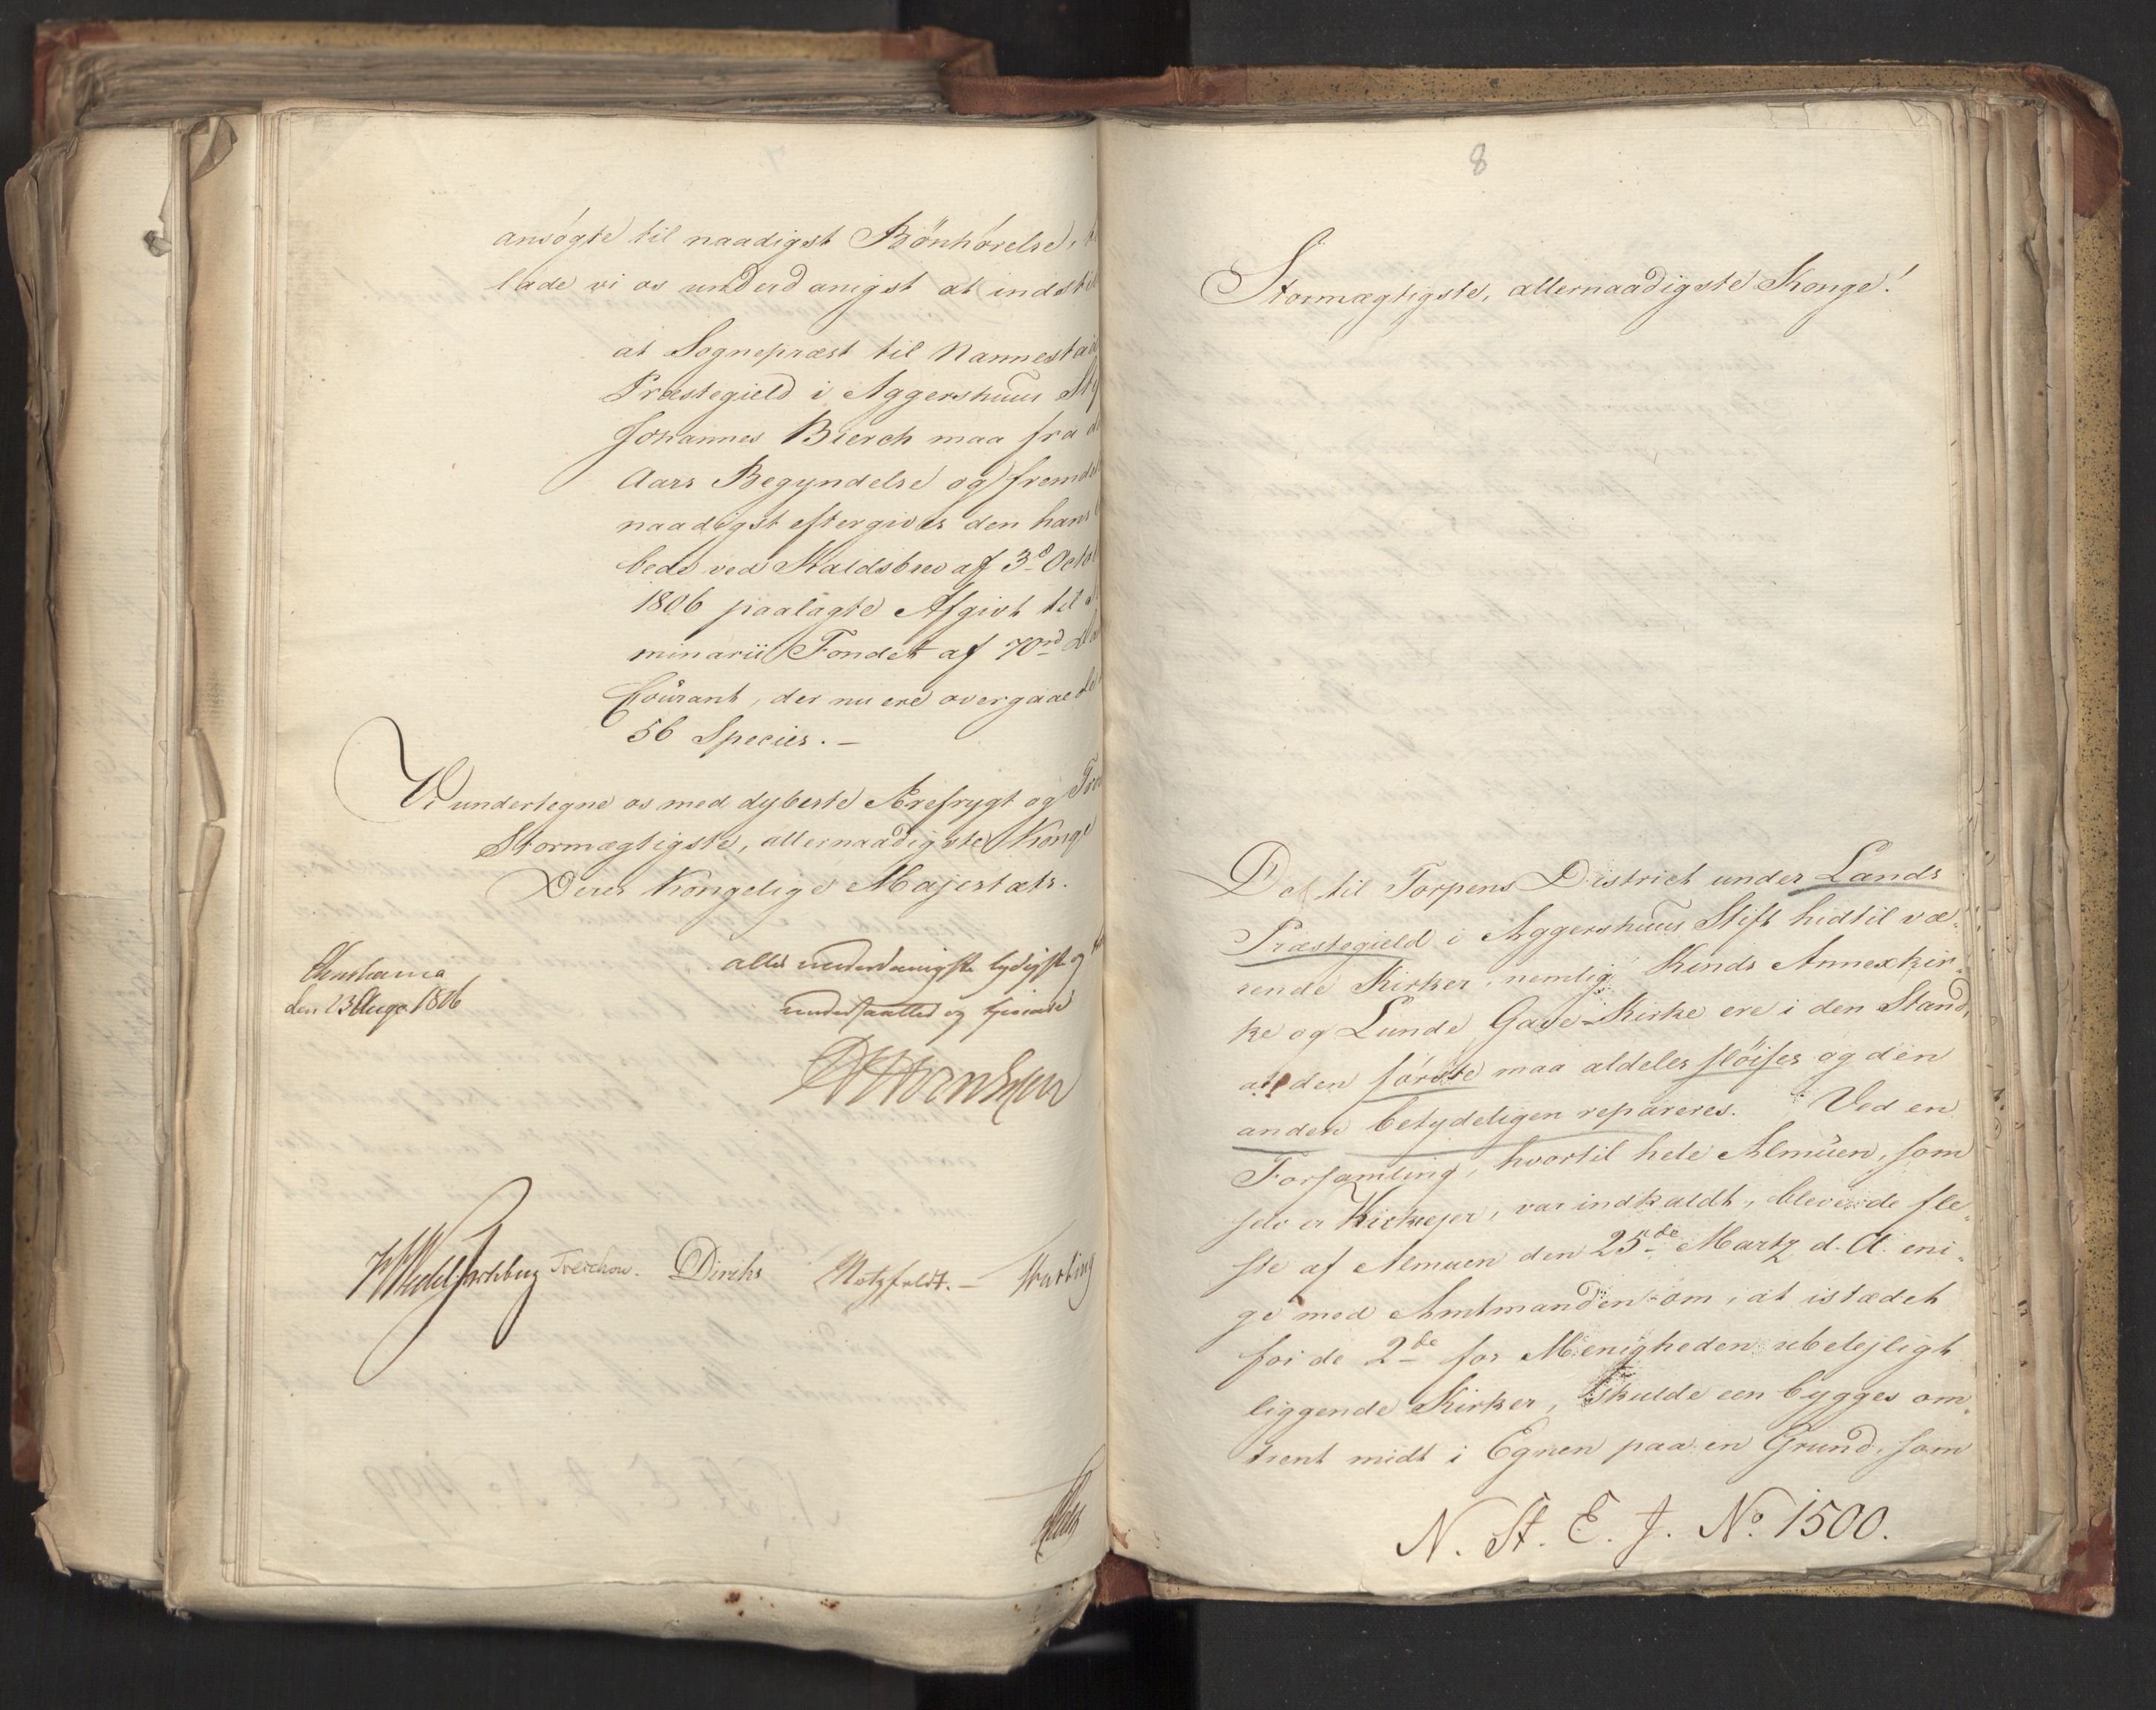 ansögte til naadigst Bönhörelse,
lade vi os underdanigst at indstil
at Sognepræst til Nannestad
Præstegield i Aggershuus Stif
Johannes Bierch maa fra de
Aars Begyndelse og fremdel
naadigst eftergives den hans
bede ved Kaldsbrev af 3d Octob
1806 paalagte Afgivt til
minarii Fondet af 70 rd
Courant, der nu ere overgaaede
56 Species. –
Vi undertegne os med dybeste Ærefrygt og Tro
Stormægtigste, allernaadigste Konge
Deres Kongelige Majestæts.
allerunderdanigste lydigste og
undersaatter og tienere
Christiania
den 23 Aug
JHWedel Jarlsberg Treschow. Diriks Motzfeldt. –
8
Stormægtigste, allernaadigste Konge!
De til Torpens District under Lands
Præstegield i Aggershuus Stift hidtil væ-
rende Kirker, nemlig Kinds Annexkir-
ke og Lunde Gave-Kirke ere i den Stand,
at den förste maa aldeles slöifes og den
anden betydeligen repareres. Ved en
Forsamling, hvortil hele Almuen, som
selv er Kirkeejer, var indkaldt, bleve de fle-
ste af Almuen den 25de Martz d. A. eni-
ge med Amtmanden om, at istædet
for de 2de for Menigheden ubelejligt
liggende Kirker, skulde een bygges om-
trent midt i Egnen paa en Grund, som
N. St. E. J. No. 1500.